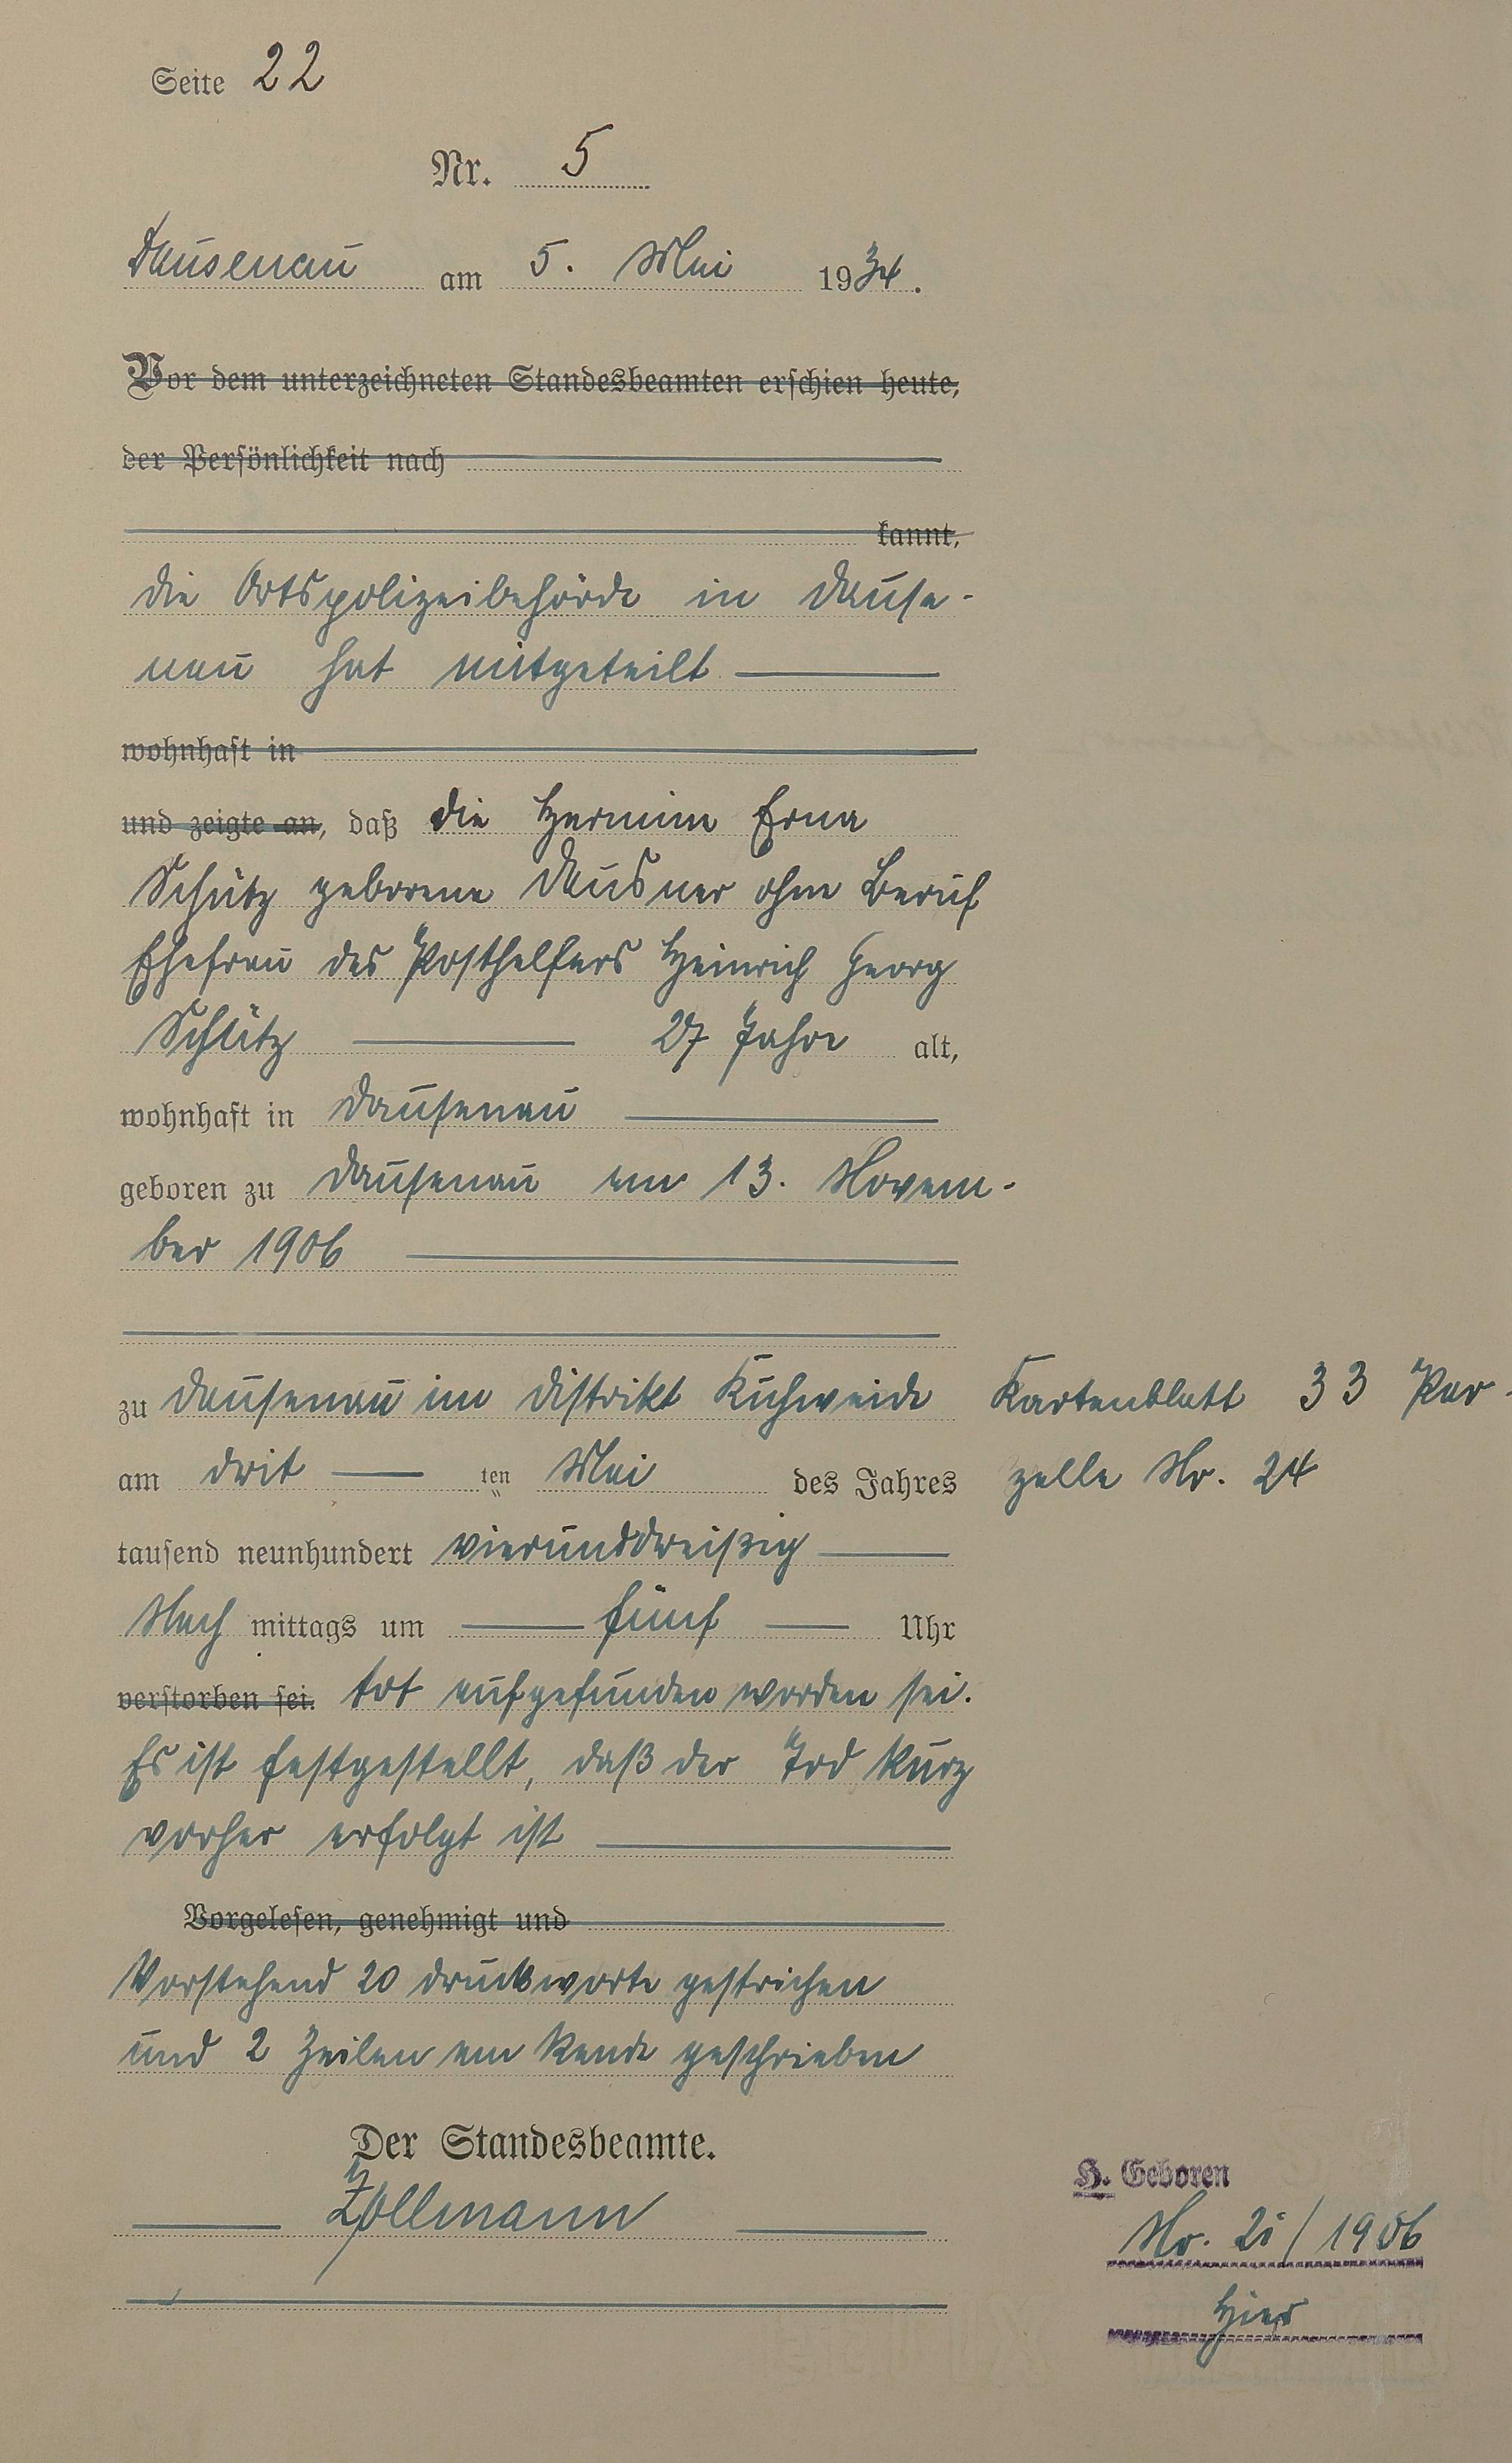 Seite 22
Nr. 5
Dausenau am 5. Mai 1934.
Vor dem unterzeichneten Standesbeamten erschien heute,
der Persönlichkeit nach
kannt,
die Ortspolizeibehörde in Dause-
nau hat mitgeteilt
wohnhaft in
und zeigte an, daß die Hermine Erna
Schütz geborene Dausner ohne Beruf
Ehefrau des Posthelfers Heinrich Georg
Schütz 27 Jahre alt,
wohnhaft in Dausenau
geboren zu Dausenau am 13. Novem-
ber 1906
zu Dausenau im Distrikt Kuhweide Kartenblatt 33 Par-
am drit ten Mai des Jahres zelle Nr. 24
tausend neunhundert vierunddreißig
Nach mittags um fünf Uhr
verstorben sei. tot aufgefunden worden sei.
Es ist festgestellt, daß der Tod kurz
vorher erfolgt ist
Vorgelesen, genehmigt und
Vorstehend 20 Druckworte gestrichen
und 2 Zeilen am Rande geschrieben
Der Standesbeamte.
Zollmann
H. Geboren
Nr. / 1906
hier